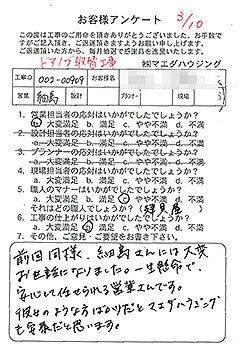 お客様アンケート
3/10
この度は工事のご用命を頂きありがとうございました。お手数で
すがご記入頂き、ご返送頂きますようお願い申し上げます。
ご返送頂いた方から、毎月抽選で感謝品を進呈いたします。
ドアノブ取替工事
㈱マエダハウジング
工事ID 002-00909 お客様名
営業 細馬 設計 プランナー 現場
1. 営業担当者の応対はいかがでしたでしょうか?
a. 大変満足 b. 満足 c. やや不満 d. 不満
2. 設計担当者の応対はいかがでしたでしょうか?
a. 大変満足 b. 満足 c. やや不満 d. 不満
3. プランナーの応対はいかがでしたでしょうか?
a. 大変満足 b. 満足 c. やや不満 d. 不満
4. 現場担当者の応対はいかがでしたでしょうか?
a. 大変満足 b. 満足 c. やや不満 d. 不満
5. 職人のマナーはいかがでしたでしょうか?
a. 大変満足 b. 満足 c. やや不満 d. 不満
それはどの職人でしょうか? (建具屋)
6. 工事の仕上がりはいかがでしたでしょうか?
a. 大変満足 b. 満足 c. やや不満 d. 不満
7. その他、ご意見・ご要望をお書き下さい。
前回同様、細馬さんには大変
お世話になりました。一生懸命で、
安心して任せられる営業さんです。
彼女のような方ばかりだとマエダハウジング
も安泰だと思います。